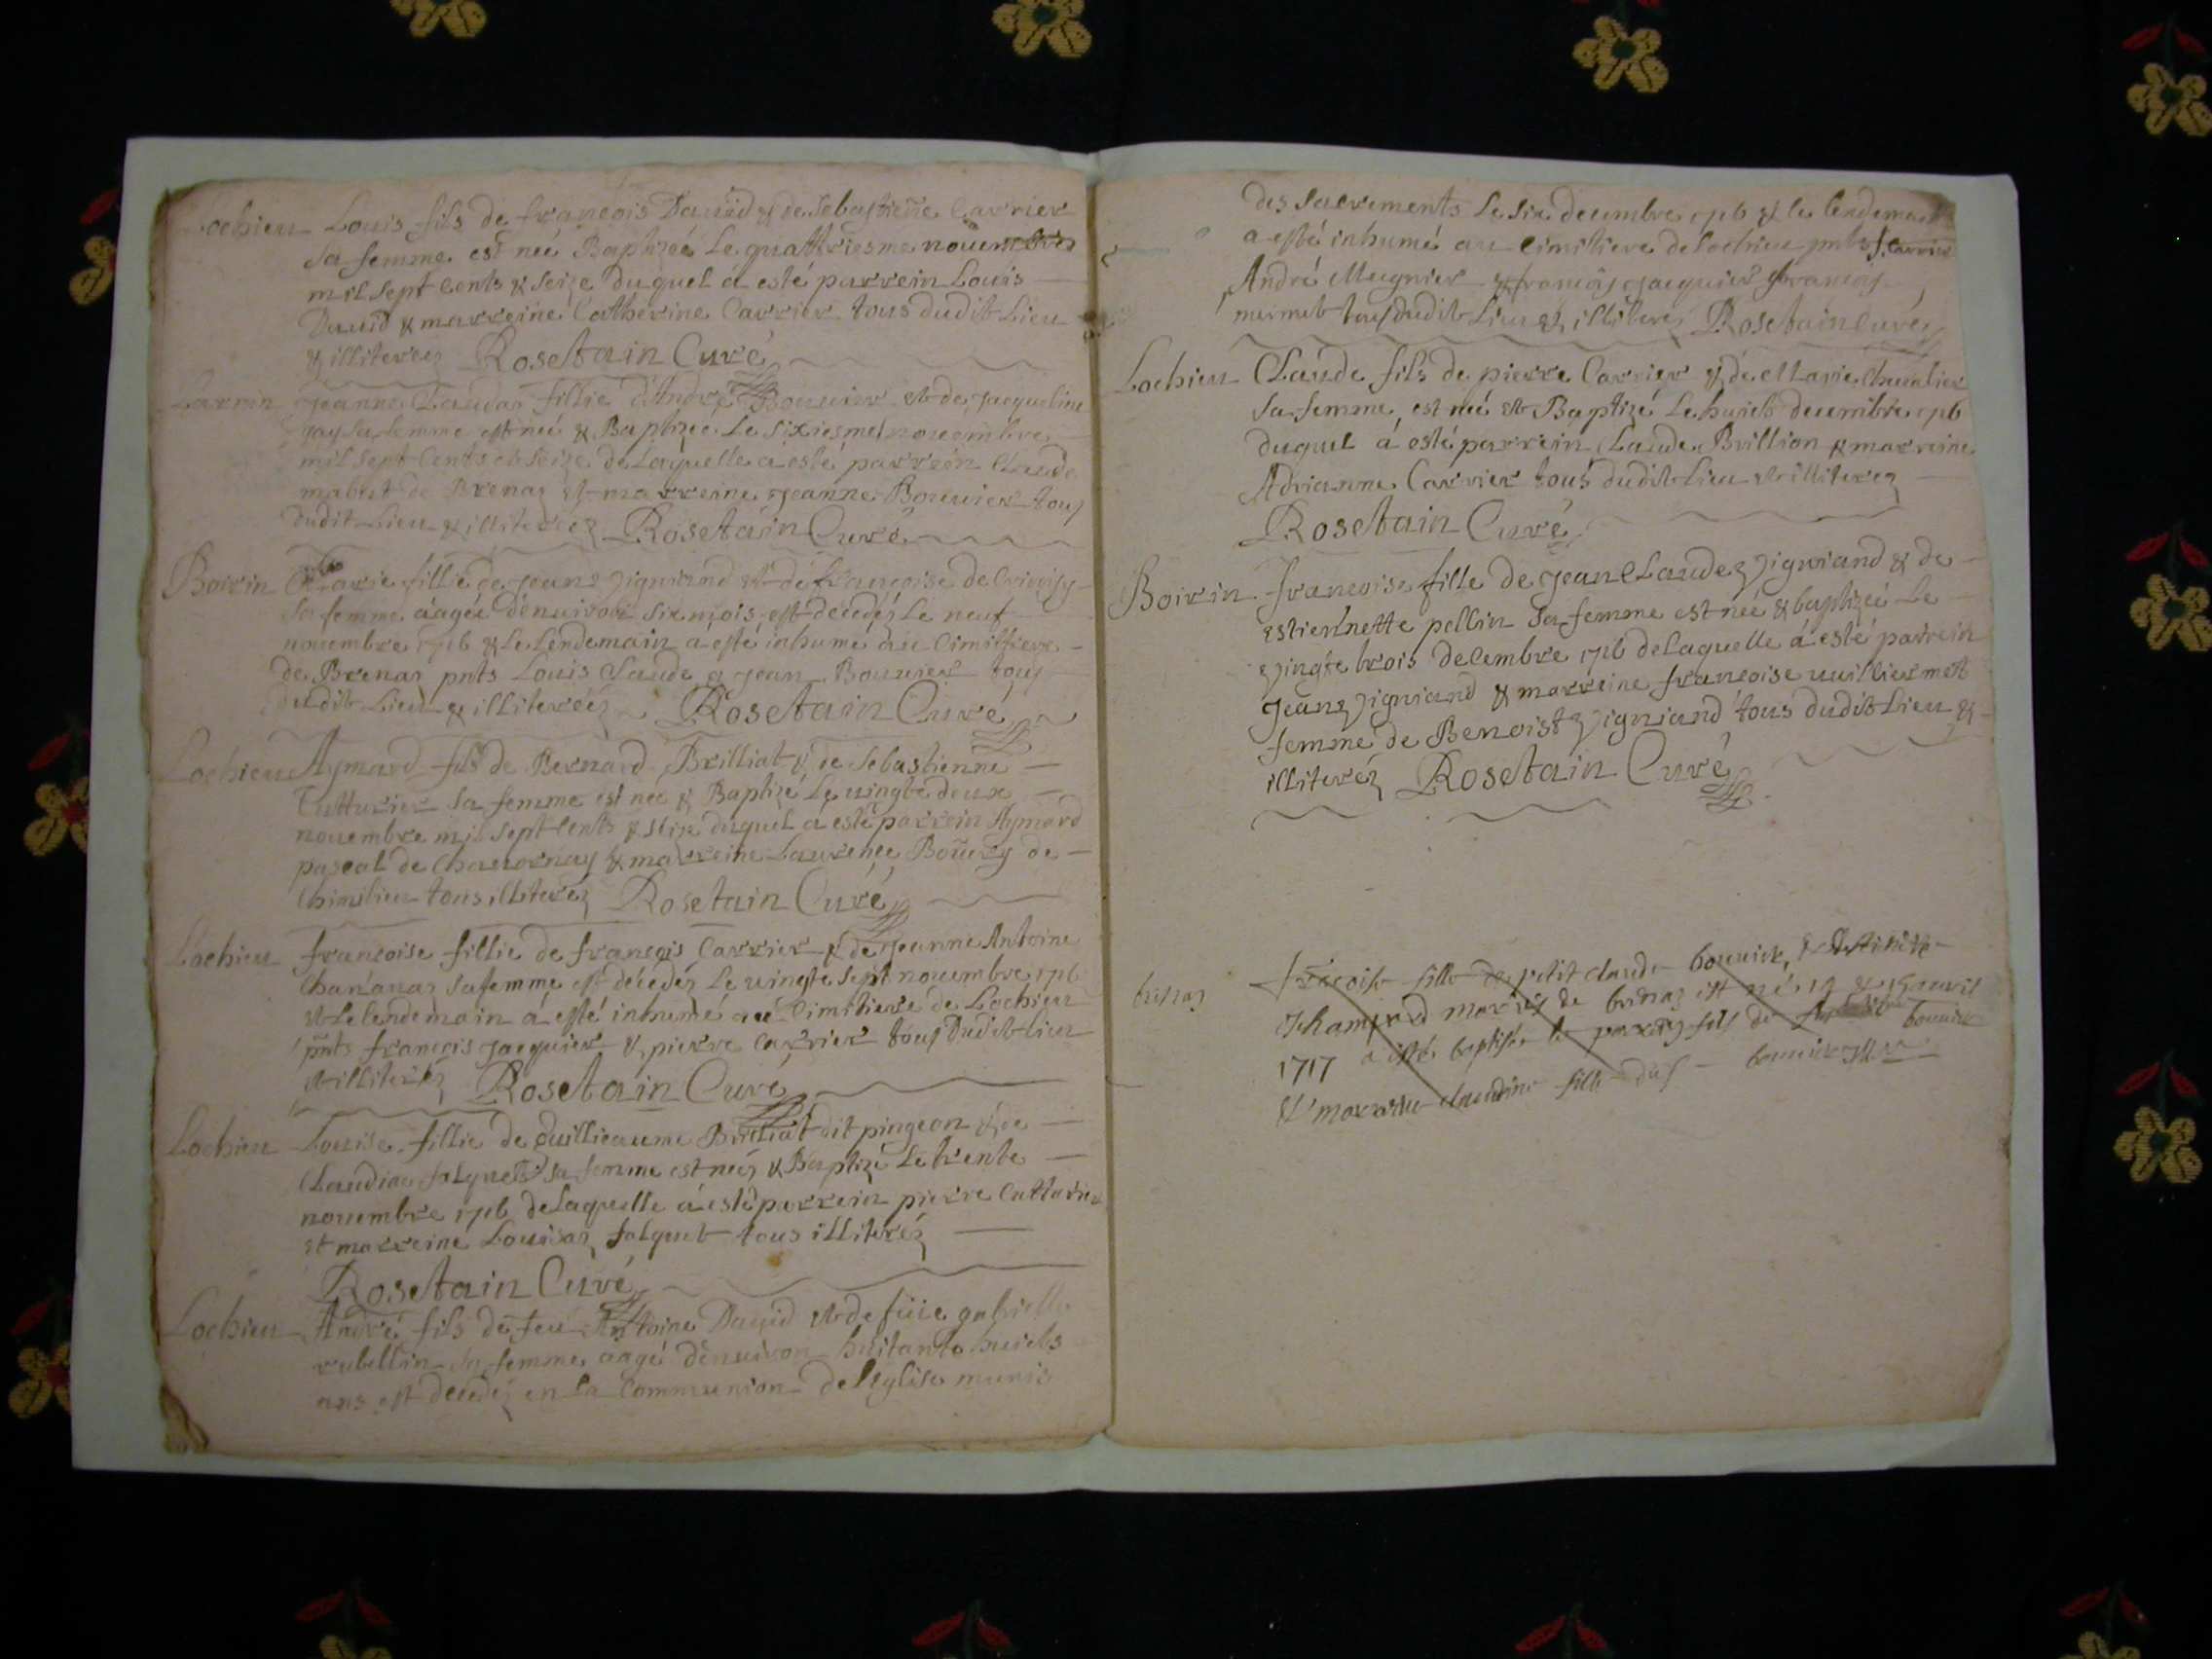 Lochieu Louis fils de françois Dauid & de Sebastiene Carrier
sa femme est neé Baptizeé Le quattriesme nouembre
mil sept Cents & seize duquel a esté parrein Louis
Dauid & marreine Catherine Carrier tous dudit Lieu
& illiterez Rosetain Curé
Jeanne Claudaz fillie d'André Bouuier et de Jacqueline
gay sa femme est neé & Baptizeé Le sixiesme nouembre
mil sept Cents et seize de Laquelle a esté parrein Claude
de Brenaz et marreine Jeanne Bouuier tous
dudit Lieu & illiterez Rosetain Curé
Boirin Marie fillie de Jean et de françoise
sa femme aageé d'enuiron six mois est decedéz Le neuf
nouembre 1716 & Le Lendemain a esté inhumé au Cimittiere
de Brenaz pnts Louis Claude & Jean Bouuier tous
dudit Lieu & illiteréz Rosetain Curé
Lochieu Aymard fils de Bernard Brilliat & de Sebastienne
Cutturier sa femme est neé & Baptizé Le uingte deux
nouembre mil sept Cents & seize duquel a esté parrein Aymard
pascal de Chauornay & marreine Laurence de
tous illiteréz Rosetain Curé
Lochieu françoise fillie de françois Carrier & de Jeanne Antoine
Chananaz sa femme est decedéz Le uingte sept nouembre 1716
et Le lendemain à esté inhumé au Cimitiere de Lochieu
pnts françois Jacquier & pierre Carrier tous dudit Lieu
& illiteréz Rosetain Curé
Lochieu Louise fillie de Guillieaume Brilliat dit pingeon & de
Claudine falquet sa femme est neéz & Baptizé Le trente
nouembre 1716 de Laquelle à esté parrein pierre Cutturier
et marreine Louisaz falquet tous illiteréz
Rosetain Curé
Lochieu André fils de feu Antoine Dauid et de füe gabrielle
rubellin sa femme aagé d'enuiron huitante huicts
ans est decedéz en La Communion de l'Eglise munis
des sacrements Le six decembre 1716 & le lendemain
a esté inhumé au Cimitiere de Lochieu pnts f. Carrier
André Mugnier & françois Jacquier & françois
mermet tous dudit Lieu & illiterez Rosetain Curéz
Lochieu Claude fils de pierre Carrier & de Marie
sa femme est neé et Baptizé Le huicts decembre 1716
duquel à esté parrein Claude Brillion & marreine
Adrianne Carrier tous dudit Lieu et illiterez
Rosetain Curé
Boirin françoise fille de Jean Claude & de
Estiennette pellin sa femme est neé & baptizeé Le
uingte trois decembre 1716 de Laquelle à esté parrein
Jean & marreine françoise uuilliermet
femme de Benoist tous dudit Lieu &
illiteréz Rosetain Curé
brenaz françoise fille de petit claude bouuier &
mariez de brenaz est né 15 & 16 auril
1717 a esté baptisée le parrez fils de bouuier
et marraine claudine fille du bouuier